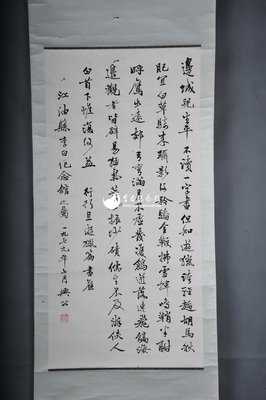 邊城兒生年不讀一字書但知遊獵誇輕趫胡馬秋
肥宜白草騎來躡影何矜驕金鞭拂雪揮鳴鞘半酣
呼鷹出遠郊弓彎滿月不虛發雙鶬迸落連飛髇海
邊觀者皆辟易猛氣英風振沙磧儒生不及游俠人
白首下帷復何益 行行且遊獵篇 書
江油縣李白紀念館之屬 一九七九年 月 興公